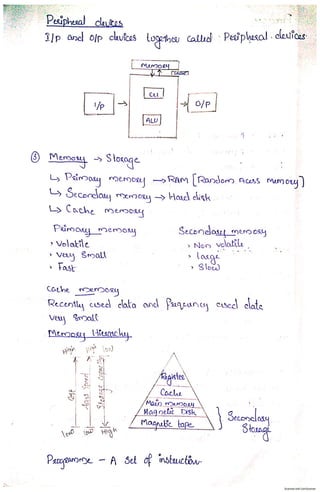 Peripheral devices
I/p and o/p devices together called Peripheral devices
Memory
I/p
CU
ALU
O/P
③ Memory → Storage
↳ Primary memory → RAM [Random Acess memory]
↳ Secondary memory → Hard disk
↳ Cache memory
Primary memory Secondary memory
› Volatile › Non volatile
› very small › large
› Fast › Slow
Cache memory
Recently used data and frequency used data
very small
Memory Hierarchy
High High low
Cost
Access Speed
Storage capacity
low low High
Register
Cache
Main memory
Magnetic Disk
Magnetic tape
} Secondary Storage
Programme - A Set of instruction